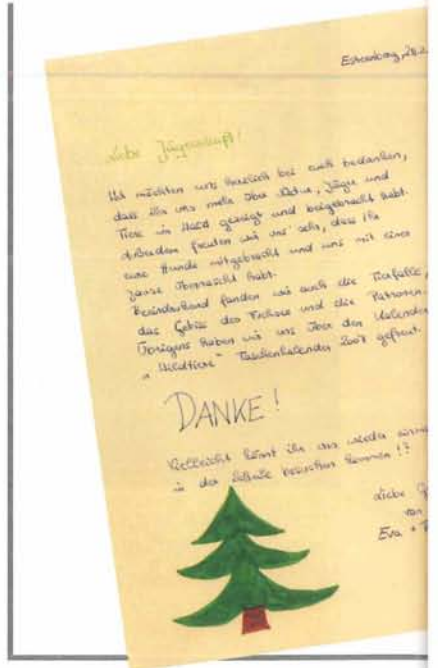 Liebe Jägerschaft!
Wir möchten uns herzlich bei euch bedanken,
dass ihr uns mehr über Natur, Jäger und
Tiere im Wald gezeigt und beigebracht habt.
Außerdem freuten wir uns sehr, dass ihr
eure Hunde mitgebracht und uns mit einer
Jause überrascht habt.
Beeindruckend fanden wir auch die Tierfelle,
das Gebiss des Fuchses und die Patronen.
Übrigens haben wir uns über den Kalender
„Wildtiere" Taschenkalender 2007 gefreut.
DANKE!
Vielleicht könnt ihr uns wieder
in der Schule besuchen kommen!?
Liebe
von
Eva +